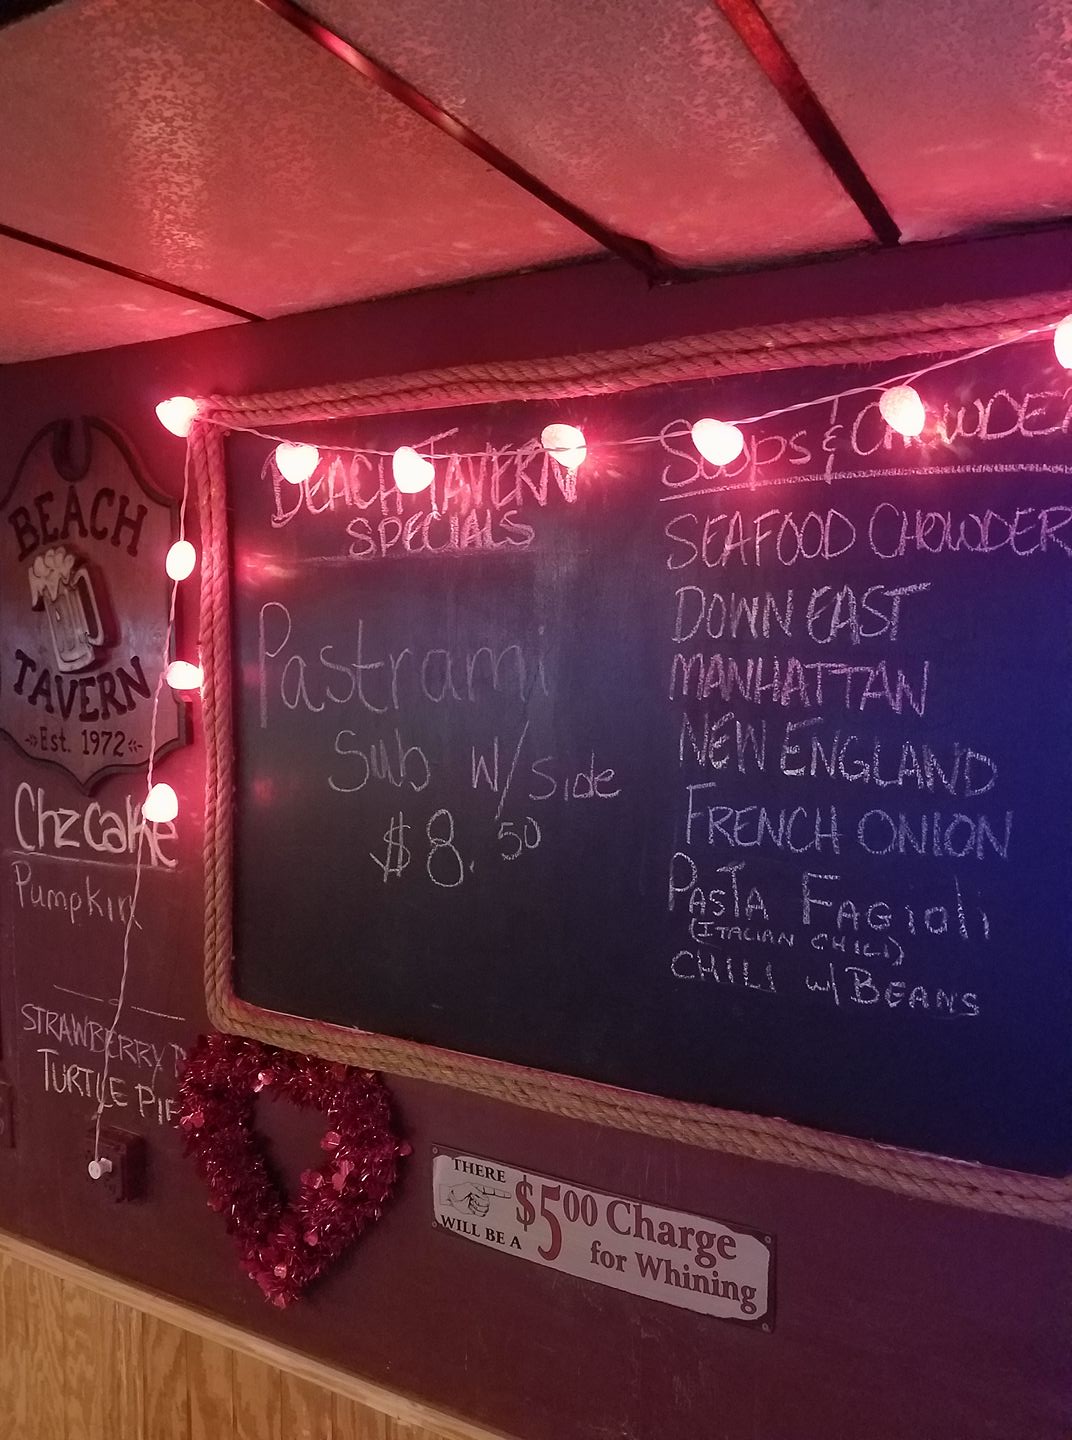 BEACH
TAVERN
Est. 1972
Chzcake
Pumpkin
STRAWBERRY
TURTLE PIE
BEACH TAVERN
SPECIALS
Pastrami
Sub w/ side
$8.50
SOUPS & CHOWDER
SEAFOOD CHOWDER
DOWN EAST
MANHATTAN
NEW ENGLAND
FRENCH ONION
PASTA FAGIOLI
(ITALIAN CHILI)
CHILI w/ BEANS
THERE WILL BE A $5.00 Charge
for Whining